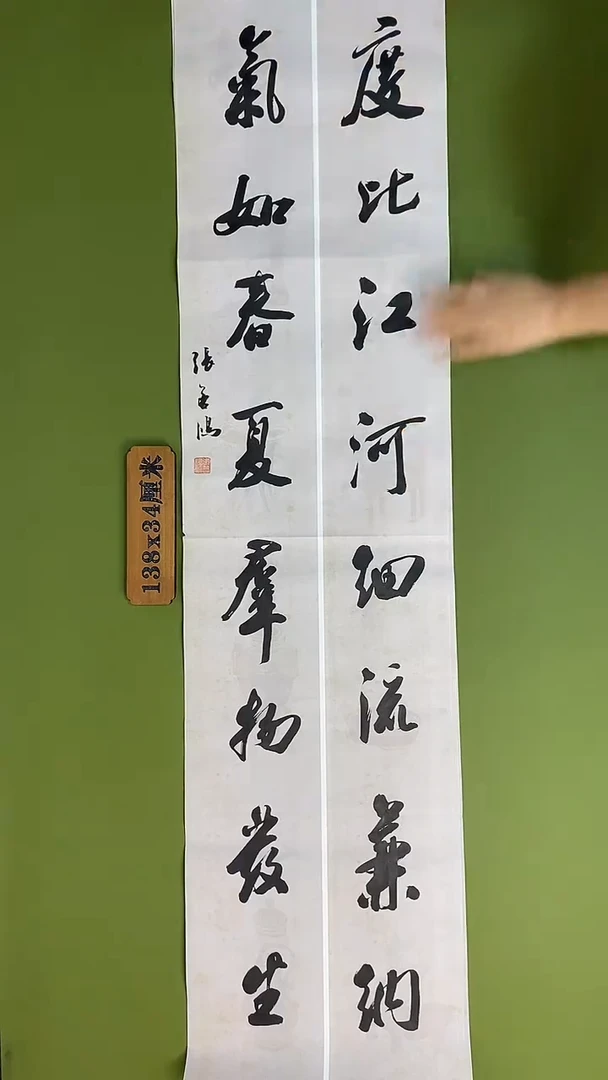 度比江河細流兼納
氣如春夏羣物發生
138x34厘米